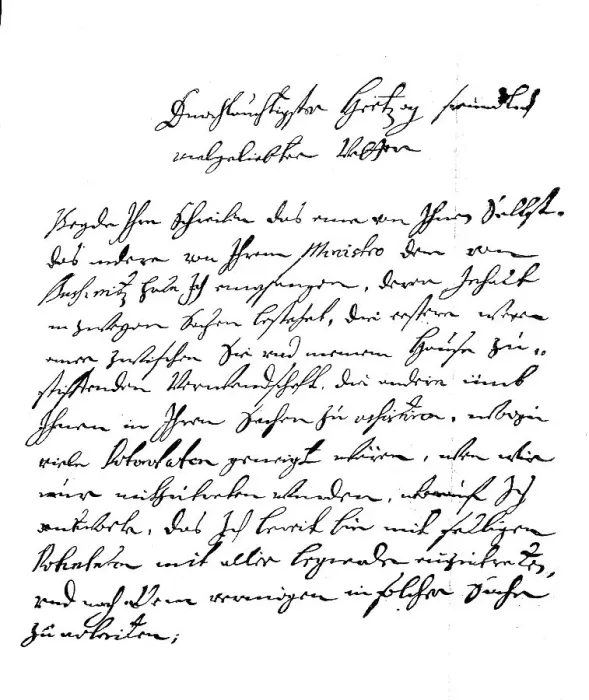 Durchlauchtigster Hertzog freundlich
vielgeliebter Vetter
Beyde Ihre Schreiben das eine von Ihnen Selbst,
das andere von Ihrem Ministro dem von
habe Ich empfangen, deren Inhalt
in zweyen Sachen bestehet, die erstere wegen
einer zwischen Sie und meinem Hause zu
stifftenden Verwandschafft, die andere umb
Ihnen in Ihren Sachen zu assistiren, wozu
viele Potentaten geneigt wären, wen wir
nur mitzutreten wurden, worauf Ich
antworte, das Ich bereit bin mit selbigen
Potentaten mit aller einzutreten,
und nach allem vermögen in solcher Sache
zu arbeiten;